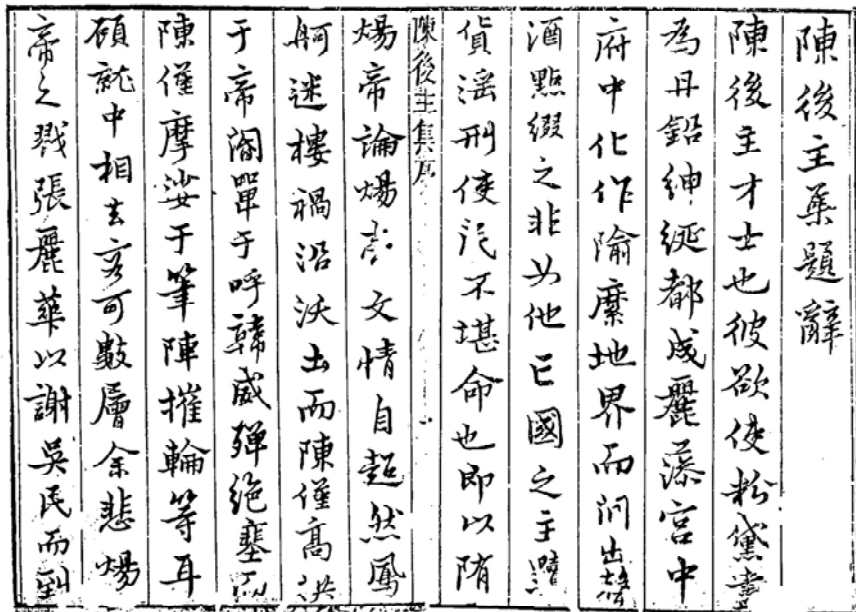 陳後主集題辭
陳後主才士也彼欲使粉黛盡
為丹鉛紳綖都成麗藻宮中
府中化作隃糜地界而間出
酒點綴之非如他亡國之主
貨淫刑使民不堪命也即以隋
陳後主集序
煬帝論煬 文情自超然鳳
舸迷樓禍沿沃土而陳僅高
于帝閽單于呼韓威殫絕塞而
陳僅摩娑于筆陣摧輪等耳
碩就中相去客可數層余悲煬
帝之戮張麗華以謝吳民而到